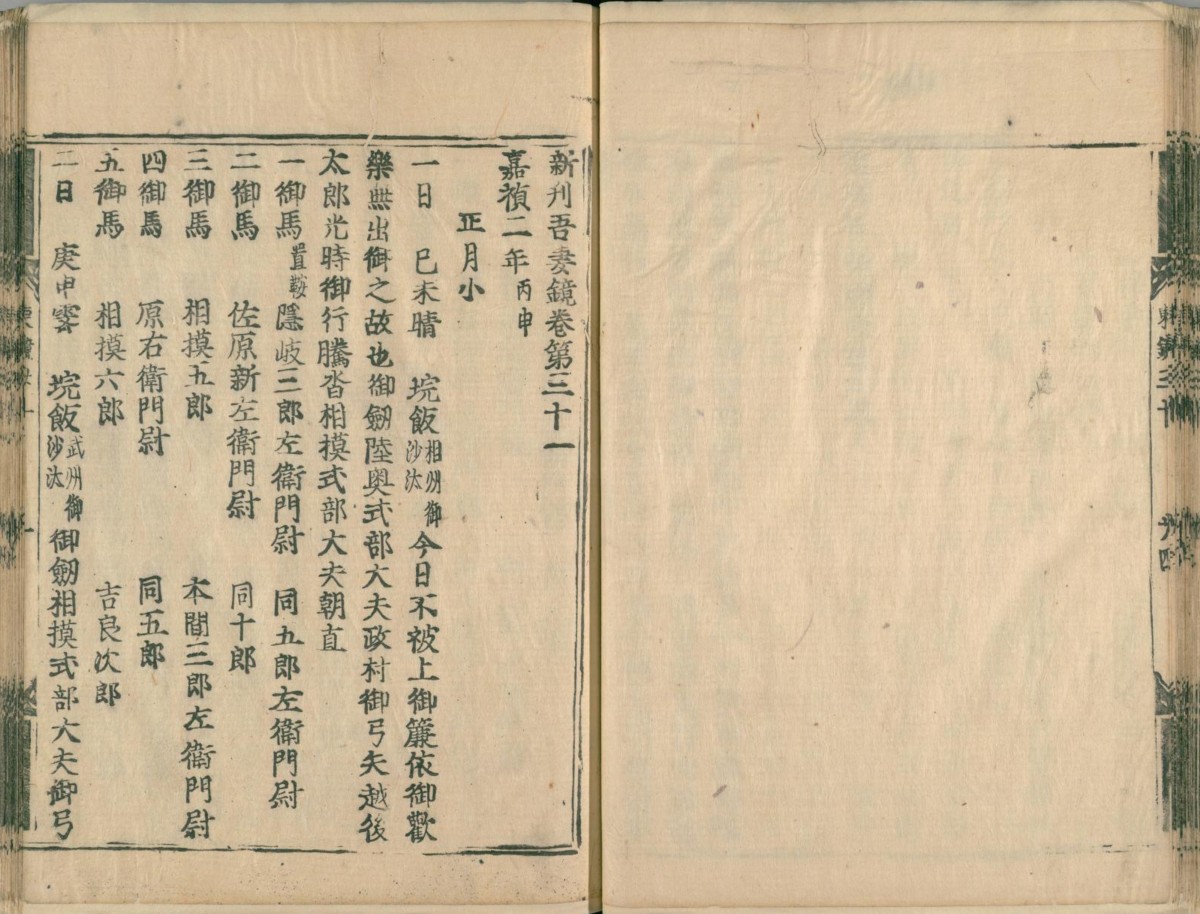 新刊吾妻鏡卷第三十一
嘉禎二年丙申
正月小
一日 己未晴 垸飯相州御沙汰今日不被上御簾依御歡
樂無出御之故也御劔陸奥式部大夫政村御弓矢越後
太郎光時御行騰沓相摸式部大夫朝直
一御馬置鞍隱岐三郎左衛門尉 同五郎左衛門尉
二御馬 佐原新左衛門尉 同十郎
三御馬 相摸五郎 本間三郎左衛門尉
四御馬 原右衛門尉 同五郎
五御馬 相摸六郎 吉良次郎
二日 庚申霽 垸飯武州御沙汰御劔相摸式部大夫御弓